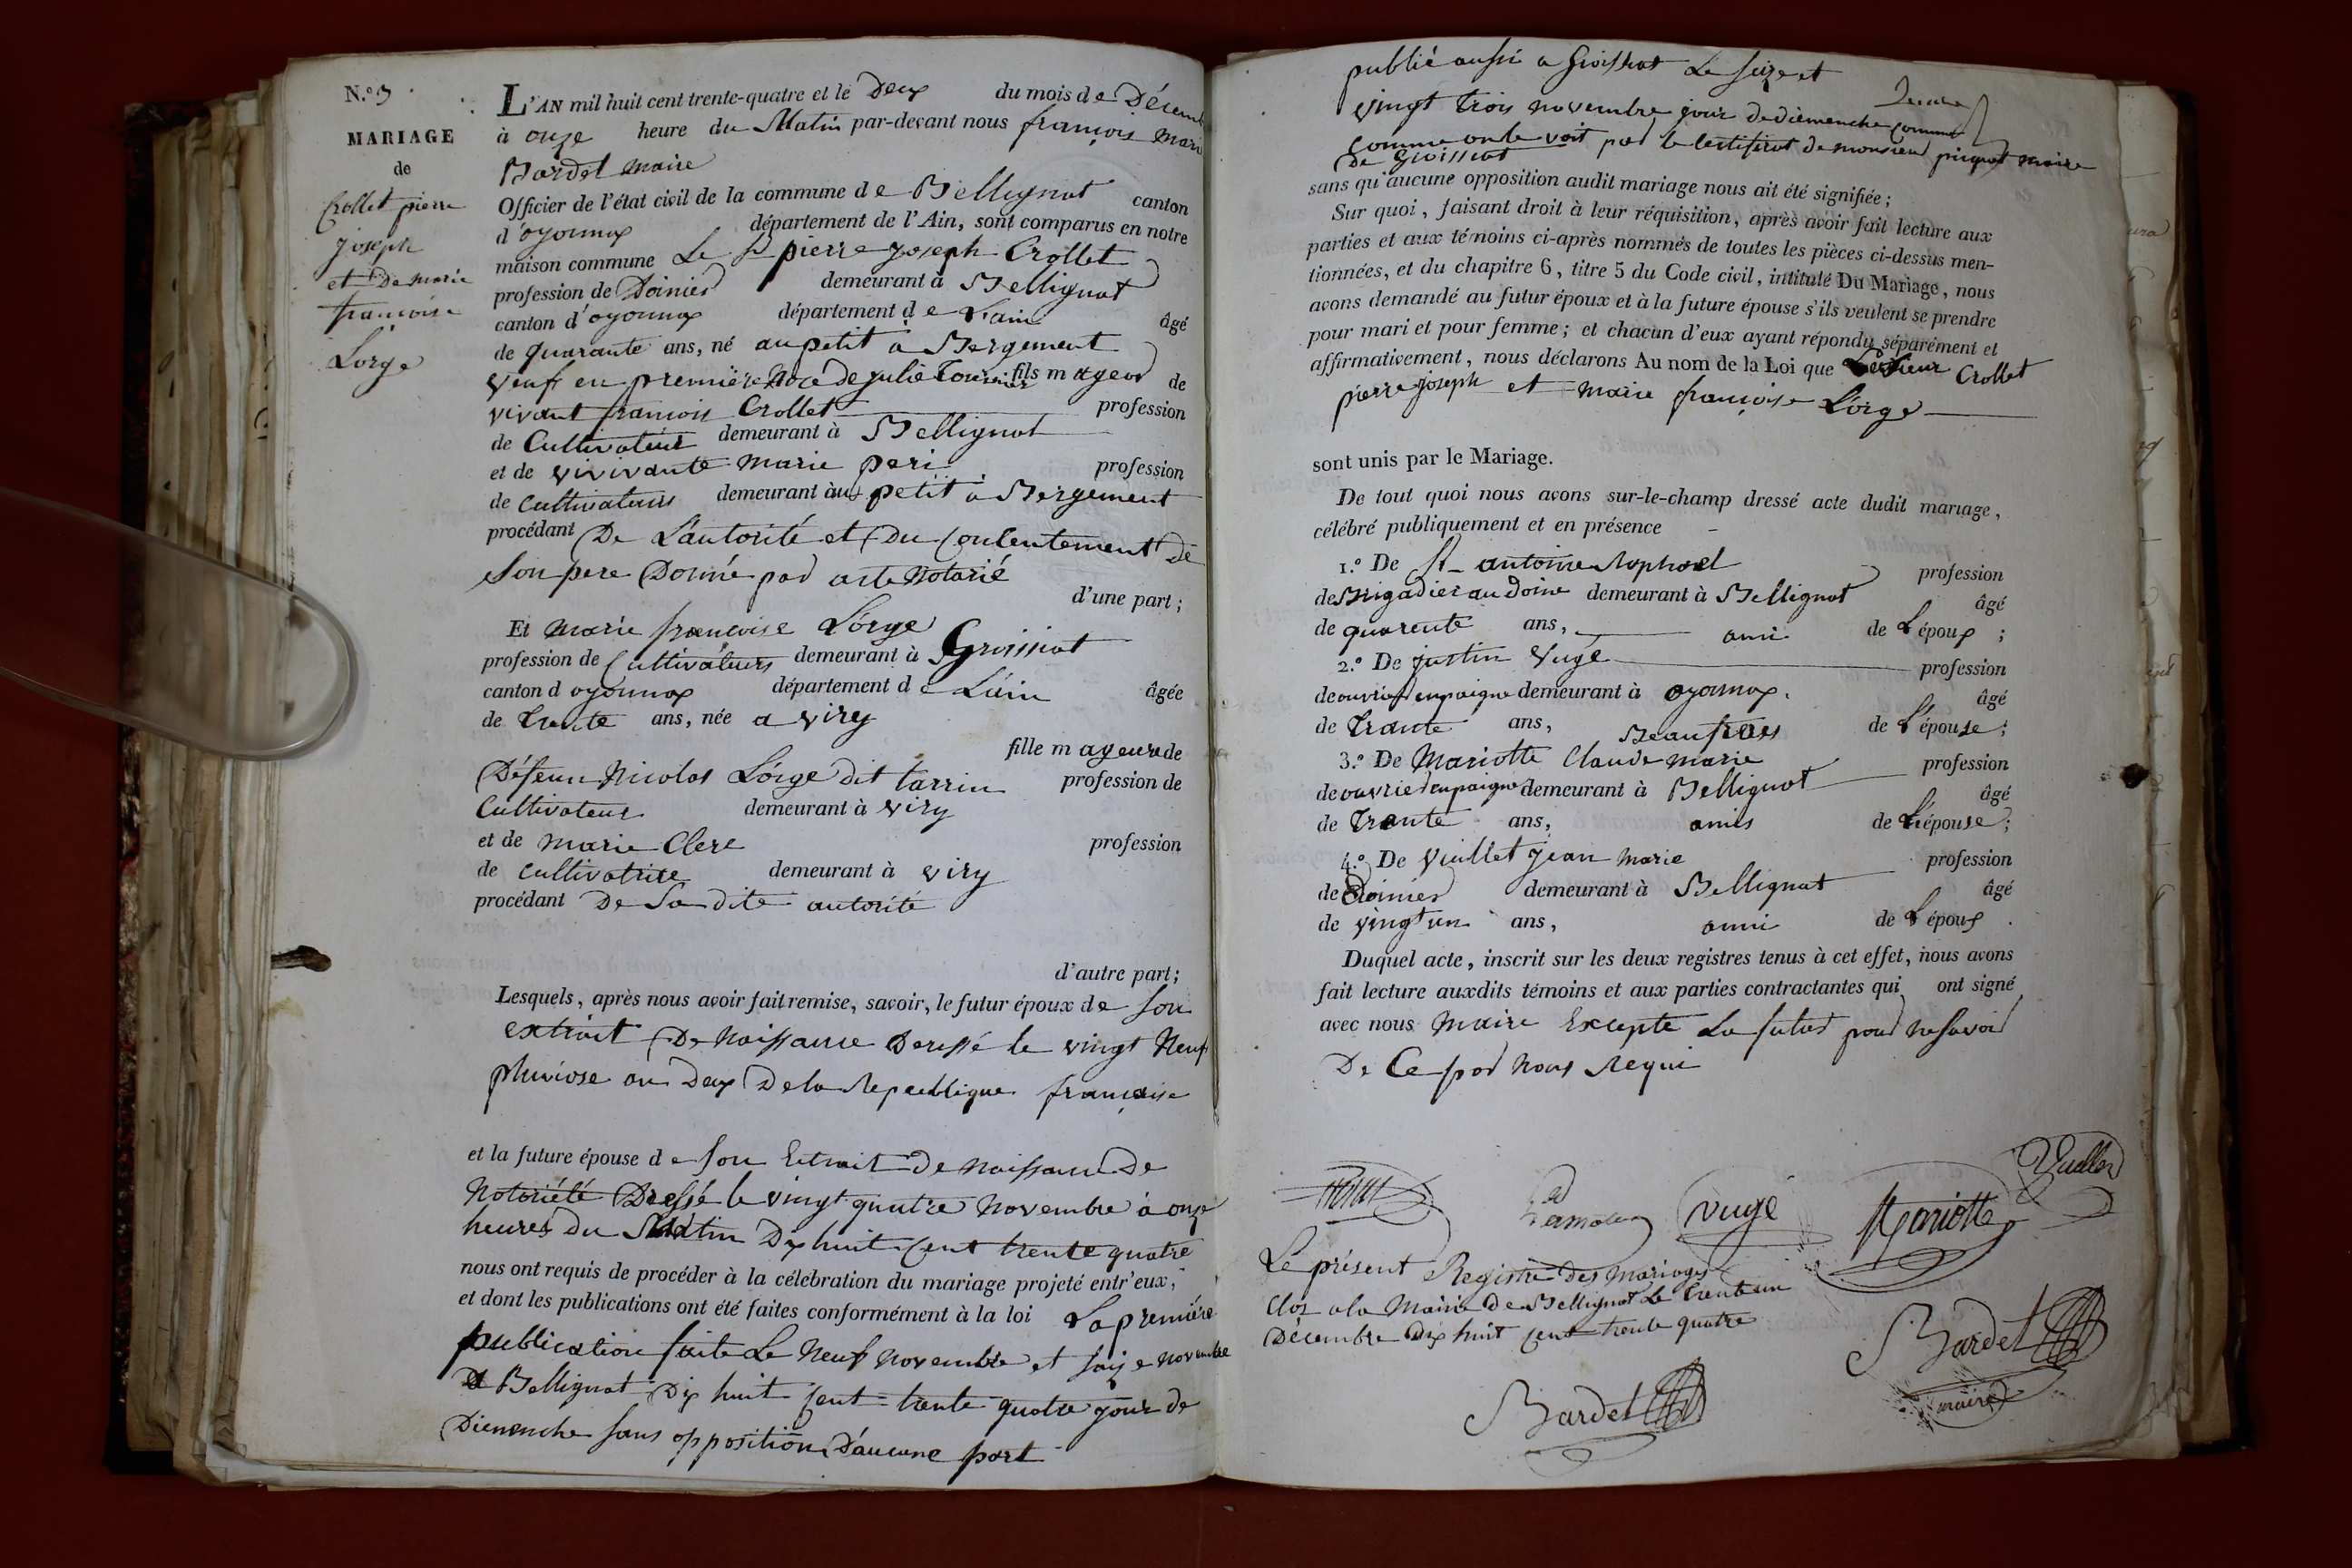 N.º 3
MARIAGE
de
Crollet pierre
joseph
et De marie
françoise
Lorge
L'AN mil huit cent trente-quatre et le Deux du mois de Décemb
à onze heure du Matin par-devant nous françois Marie
Bardet maire
Officier de l'état civil de la commune de Bellignat canton
d'oyonnax département de l'Ain, sont comparus en notre
maison commune Le Sr pierre joseph Crollet
profession de Doinier demeurant à Bellignat
canton d'oyonnax département de Lain âgé
de quarante ans, né au petit à Bergement
veuf en première Noce de julie fils mageur de
vivant françois Crollet profession
de Cultivateur demeurant à Bellignat
et de vivivante Marie peri profession
de Cultivateurs demeurant au petit à Bergement
procédant De L'autorité et Du Contentement De
Son pere Donné par acte Notarié
d'une part;
Et Marie françoise Lorge
profession de Cultivateurs demeurant à Groissiat
canton d oyonnax département de L'ain âgée
de trente ans, née a viry
fille mageure de
Défeun Nicolas Lorge dit tarrin profession de
Cultivateur demeurant à viry
et de Marie Clere profession
de cultivatrice demeurant à viry
procédant De Sa dite autorité
d'autre part;
Lesquels, après nous avoir fait remise, savoir, le futur époux de son
extrait De Naissance Deressé le vingt Neuf
pluviose an Deux De la Republique française
et la future épouse de son Extrait de naissance De
Notoriété Dressé le vingt quatre Novembre à onze
heures Du Matin Dix huit Cent trente quatre
nous ont requis de procéder à la célébration du mariage projeté entr'eux,
et dont les publications ont été faites conformément à la loi La première
publication faite Le Neuf Novembre et saize novembre
A Bellignat Dix huit Cent trente quatre jour de
Diemenche sans opposition D'aucune part
publié aussi a Groissiat Le seize et
vingt trois novembre jour de diemenche comme
comme on le voit par le certificat de monsieur piquet maire
De Groissiat
sans qu'aucune opposition audit mariage nous ait été signifiée;
Sur quoi, faisant droit à leur réquisition, après avoir fait lecture aux
parties et aux témoins ci-après nommés de toutes les pièces ci-dessus men-
tionnées, et du chapitre 6, titre 5 du Code civil, intitulé Du Mariage, nous
avons demandé au futur époux et à la future épouse s'ils veulent se prendre
pour mari et pour femme; et chacun d'eux ayant répondu séparément et
affirmativement, nous déclarons Au nom de la Loi que Le sieur Crollet
pierre joseph et marie françoise Lorge
sont unis par le Mariage.
De tout quoi nous avons sur-le-champ dressé acte dudit mariage,
célébré publiquement et en présence
1.º De Sr antoine profession
de Brigadier au Doine demeurant à Bellignat âgé
de quarente ans, ami de L'époux;
2.º De justin Vugé profession
de ouvrier en paigne demeurant à oyonnax. âgé
de trante ans, Beaufrere de L'épouse;
3.º De Mariotte Claude marie profession
de ouvrier en paigne demeurant à Bellignat âgé
de trante ans, amis de L'épouse;
4.º De Vuillet jean Marie profession
de Doinier demeurant à Bellignat âgé
de vingt un ans, ami de L'époux.
Duquel acte, inscrit sur les deux registres tenus à cet effet, nous avons
fait lecture auxdits témoins et aux parties contractantes qui ont signé
avec nous Maire Excepte La futur pour ne savoir
De Ce par Nous Requi
Vugé Mariotte
Le présent Registre Des Mariages
Clos a la Mairie De Bellignat Le trente un
Décembre Dix huit Cent trente quatre
Bardet
maire
Bardet